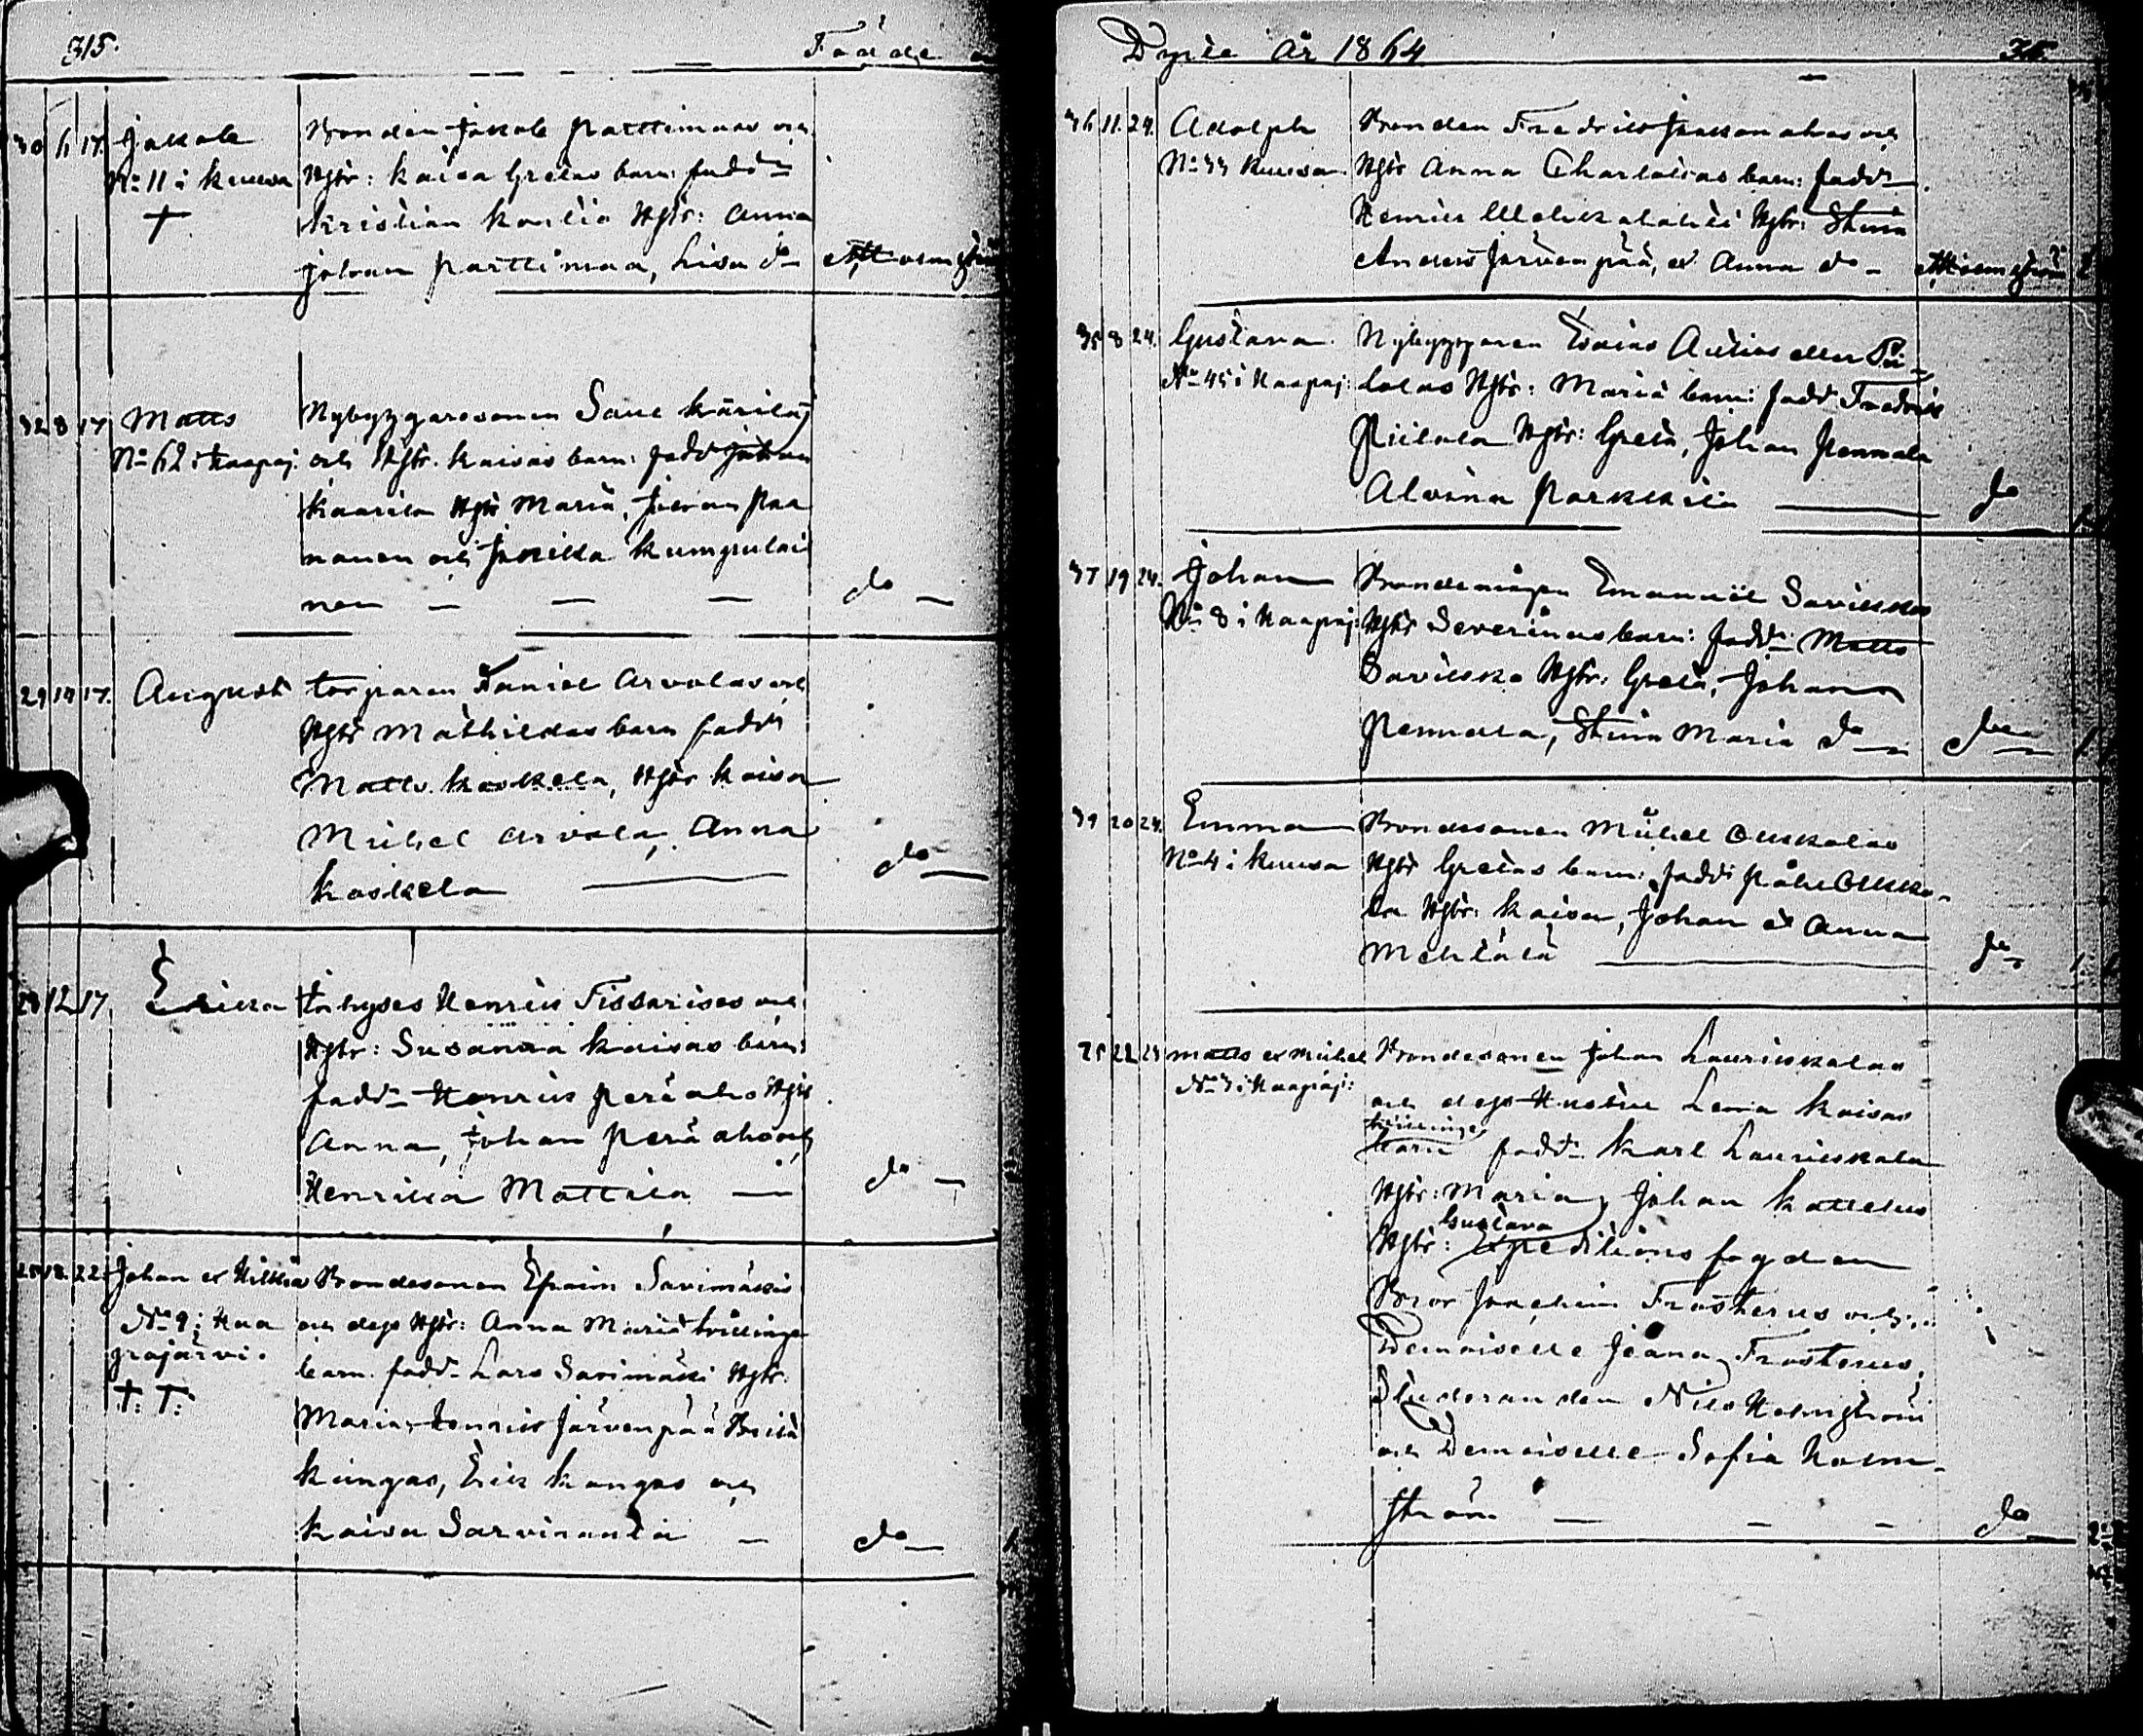 315.
Födde o
30 6 17. Jakob
No 11 i Kuusa
Bonden Jakob Parttimaas och
Hstr: Kaisa Gretas barn: fadd:
Kristian Kontio Hstr: Anna
Johan Parttimaa, Lisa do
32 8 17 Matts
No 62 i Kaapaj:
Nybyggaresonen Saul Käriläs
och Hstr. Kaisas barn: fadd: Johan
Kaarila Hstr Maria, Johan Paa
nanen och Jakika Kumpulai
nen
do
29 14 17. August
torparen Daniel Arvolas och
Hstr Mathildas barn fadd:
Matts Koskela, Hstr Kaisa
Mikel Arvola, Anna
Koskela
do
28 12 17 Erika
Inhyses Henrik Tissarises och
Hstr: Susanna Kaisas barn:
fadd: Henrik Peräaho Hstr
Anna, Johan Peräaho och
Henrika Mattila
do
12. 22. Johan o Hilkia
No 9 i Kaa
pajärvi.
†: †:
Bondesonen Efraim Savimäkis
och dess Hstr: Anna Maria tvillinge
barn. fadd: Lars Savimäki Hstr.
Maria, Henrik Järvenpää Brita
Kangas, Erik Kangas och
Kaisa Sarviranta
do
Döpte år 1864
315.
36 11. 24. Adolph
No 33 Kuusa
Bonden Fredrik Jaakonahos och
Hstr Anna Charlottas barn: fadd:
Henrik Hstr: Stina
Anders Järvenpää, o Anna do
35 8 24. Gustava
No 45 i Kaapaj:
Nybyggaren Esaias Autios eller Pii-
lolas Hstr: Maria barn: fadd: Fredrik
Piilola Hstr: Greta, Johan Pennala
Alvina Parkkila
do
37 19 24. Johan
No 8 i Kaapaj:
Bondemågen Emanuel Savikkos
Hstr Severinas barn: fadd: Matts
Savikko Hstr: Greta, Johan
Pennala, Stina Maria do
do
39 20 24. Emma
No 4 i Kuusa
Bondesonen Mikel Oukkolas
Hstr Gretas barn: fadd: Påhl Oukko-
la Hstr: Kaisa, Johan o Anna
Mehtälä
do
25 22 24 Matts o Mikel
No 3 i Kaapaj:
Bondesonen Johan Laurikkalas
och dess Hustru Lena Kaisas
tvillinge
barn fadd: Karl Laurikkala
Hstr: Maria, Johan Kattelus
Gustava
Hstr: Expeditions fogden
Bror Joachim Frosterus och
Demoiselle Joana Frosterus,
Studeranden Nils Holmström
och Demoiselle Sofia Holm-
ström
do